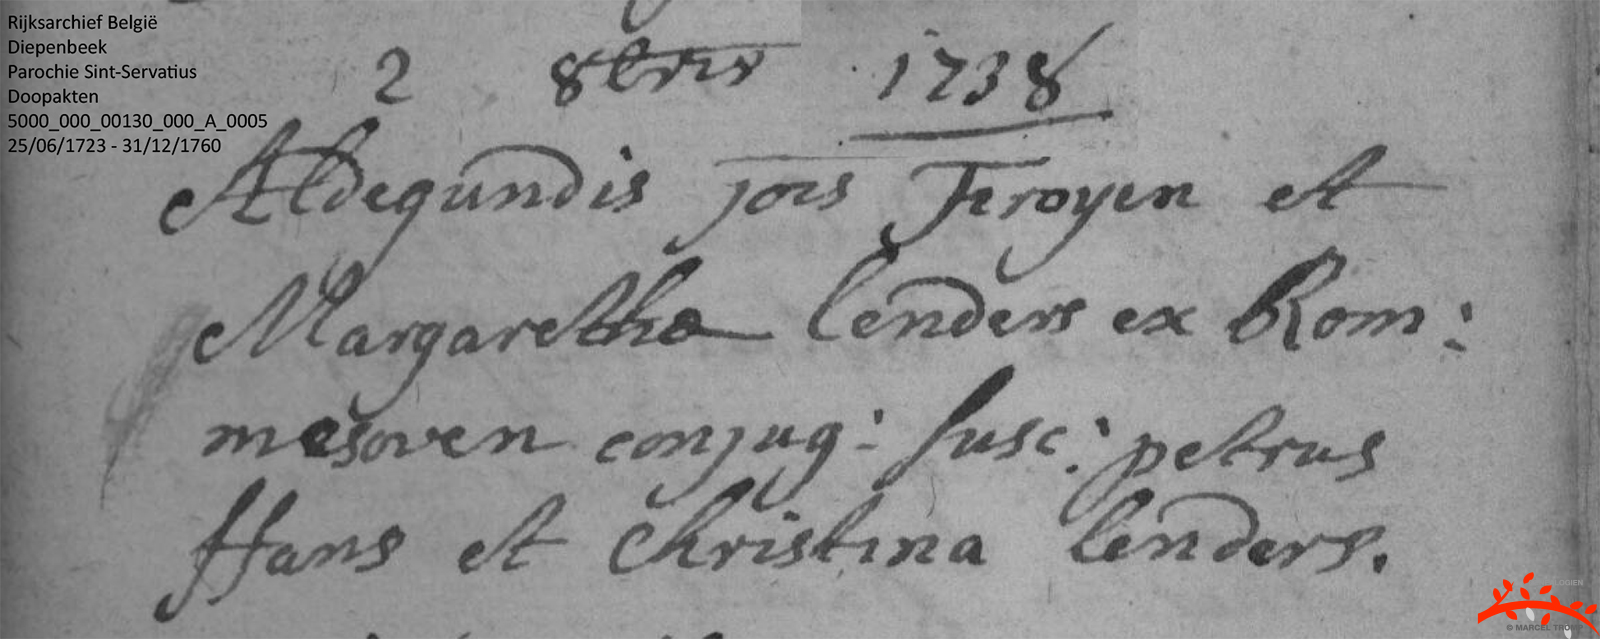 Rijksarchief België
Diepenbeek
Parochie Sint-Servatius
Doopakten
5000_000_00130_000_A_0005
25/06/1723 - 31/12/1760
2 8bris 1738
Aldegundis jois Feroyen et
Margaretha lenders ex Rom:
mesoven conjug: susc: petrus
Hans et Christina lenders.
© MARCEL TROMP